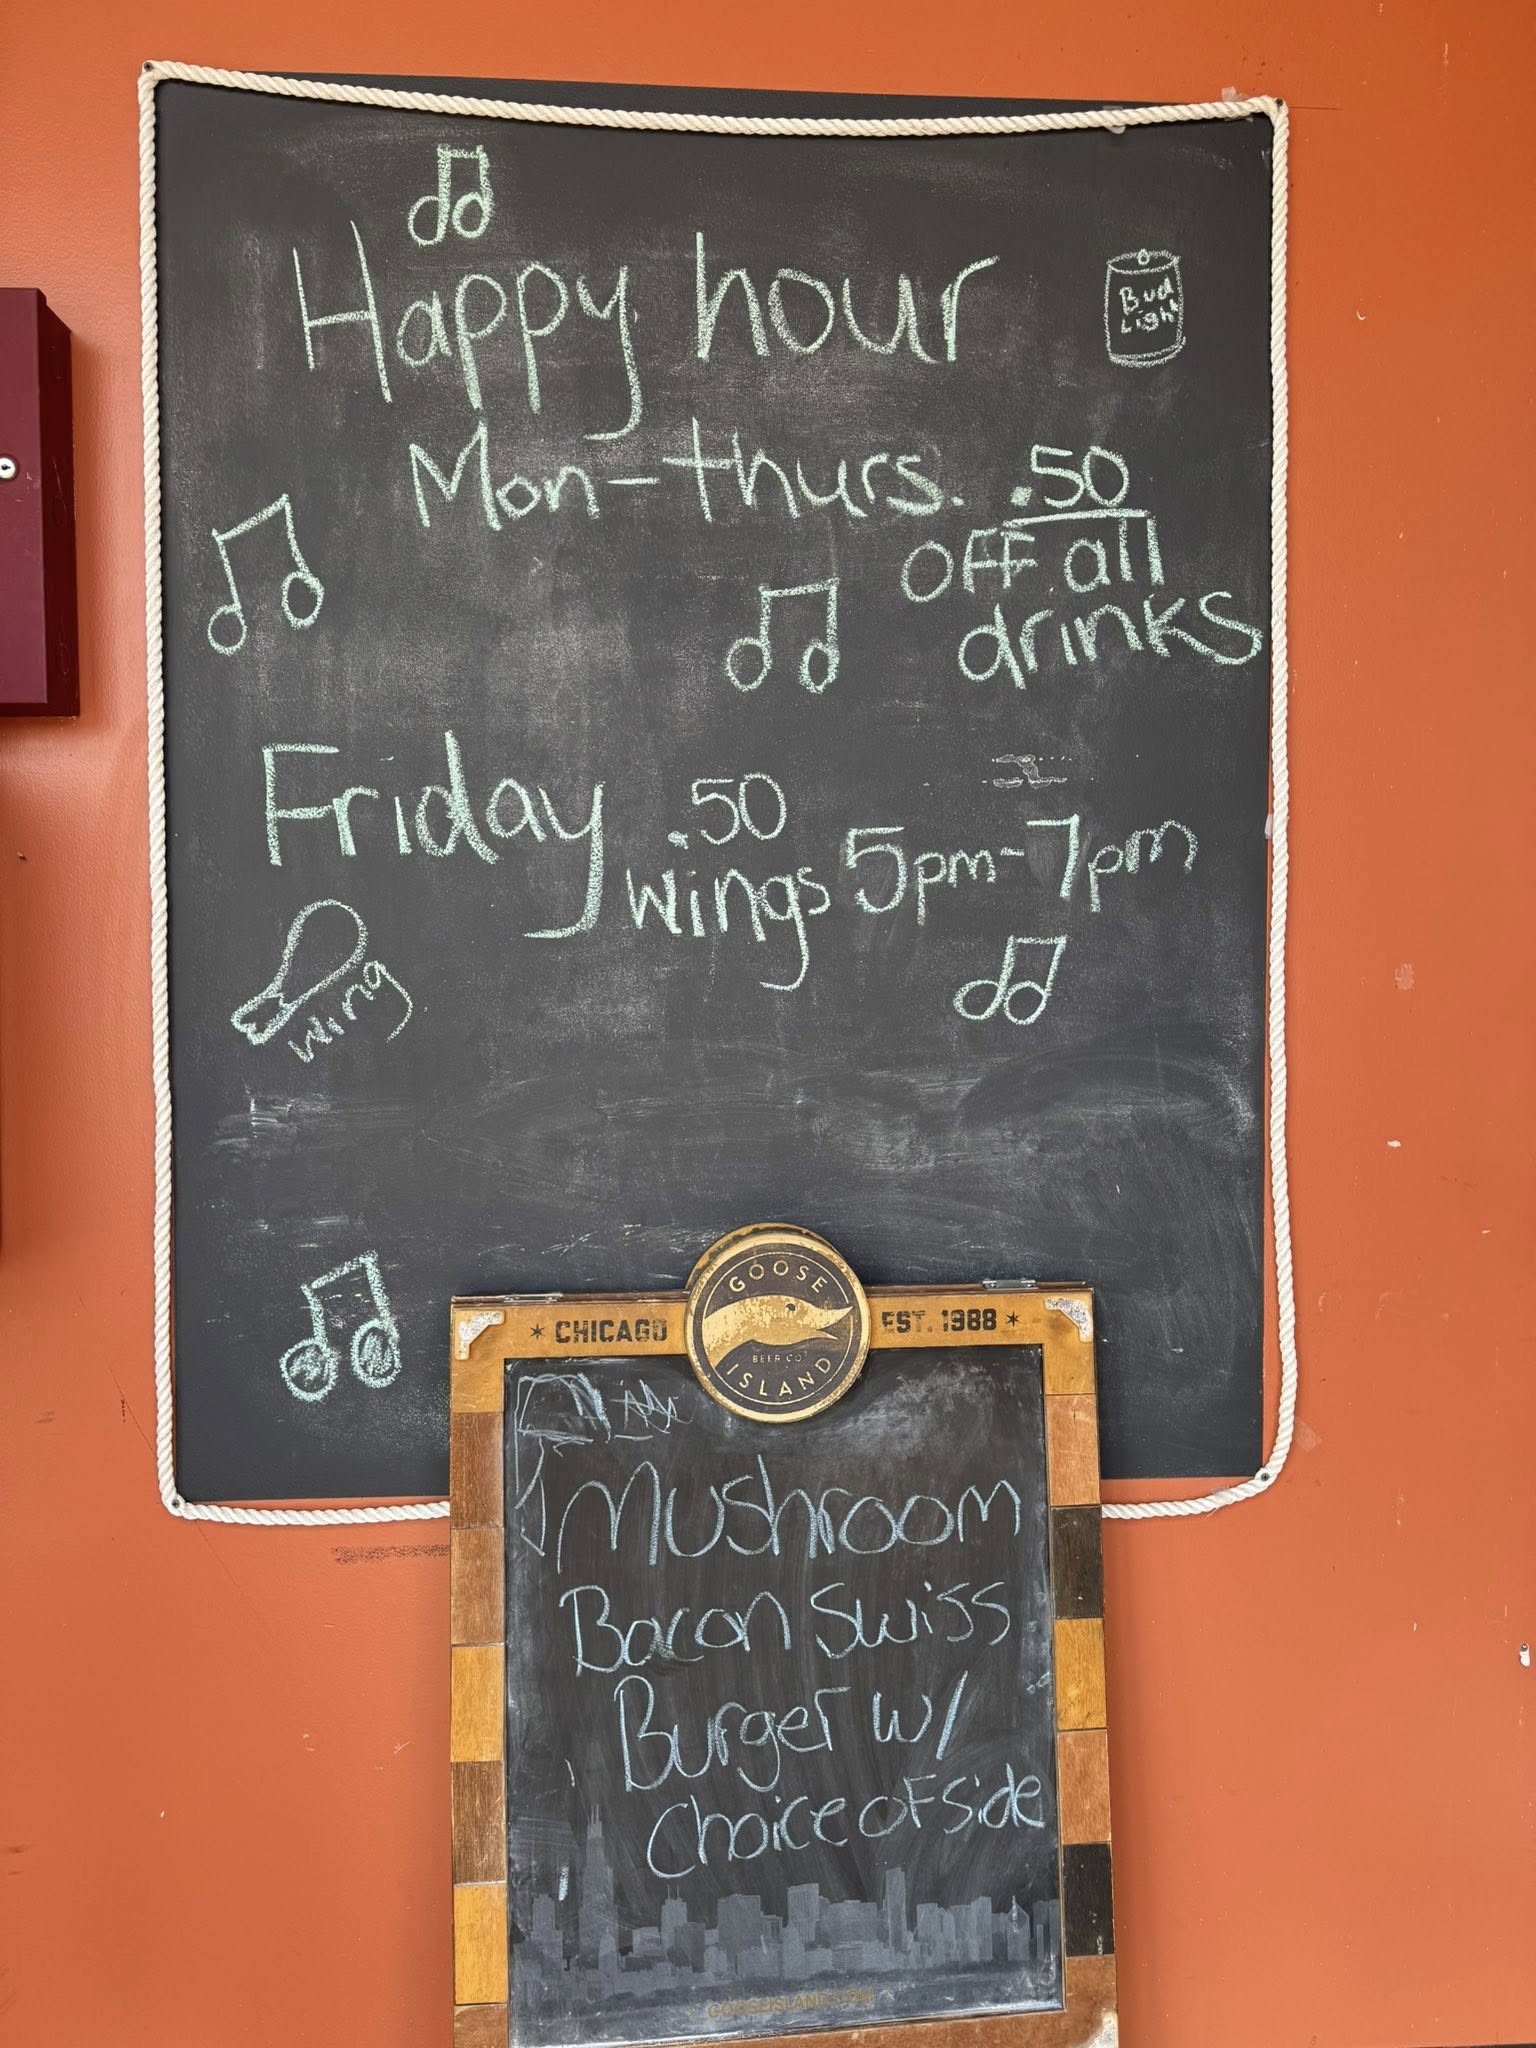 Happy hour
Bud
Light
Mon-thurs. .50
OFF all
drinks
Friday .50
wings 5pm-7pm
wing
GOOSE
ISLAND
BEER CO
CHICAGO
EST. 1988
Mushroom
Bacon Swiss
Burger w/
Choice OF Side
GOOSEISLAND.COM